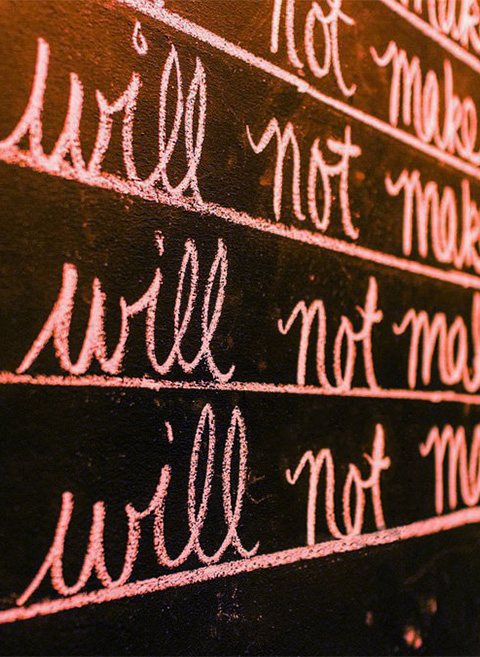 not mak
will not make
will not mak
will not mak
will not m